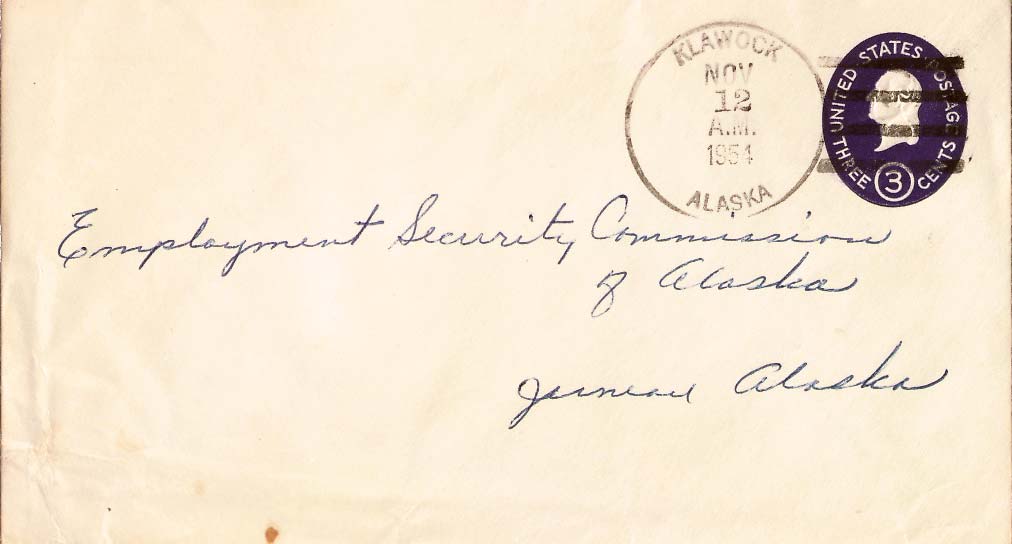 KLAWOCK
NOV
12
A.M.
1954
ALASKA
UNITED STATES POSTAGE
THREE 3 CENTS
Employment Security Commission
of Alaska
Juneau Alaska